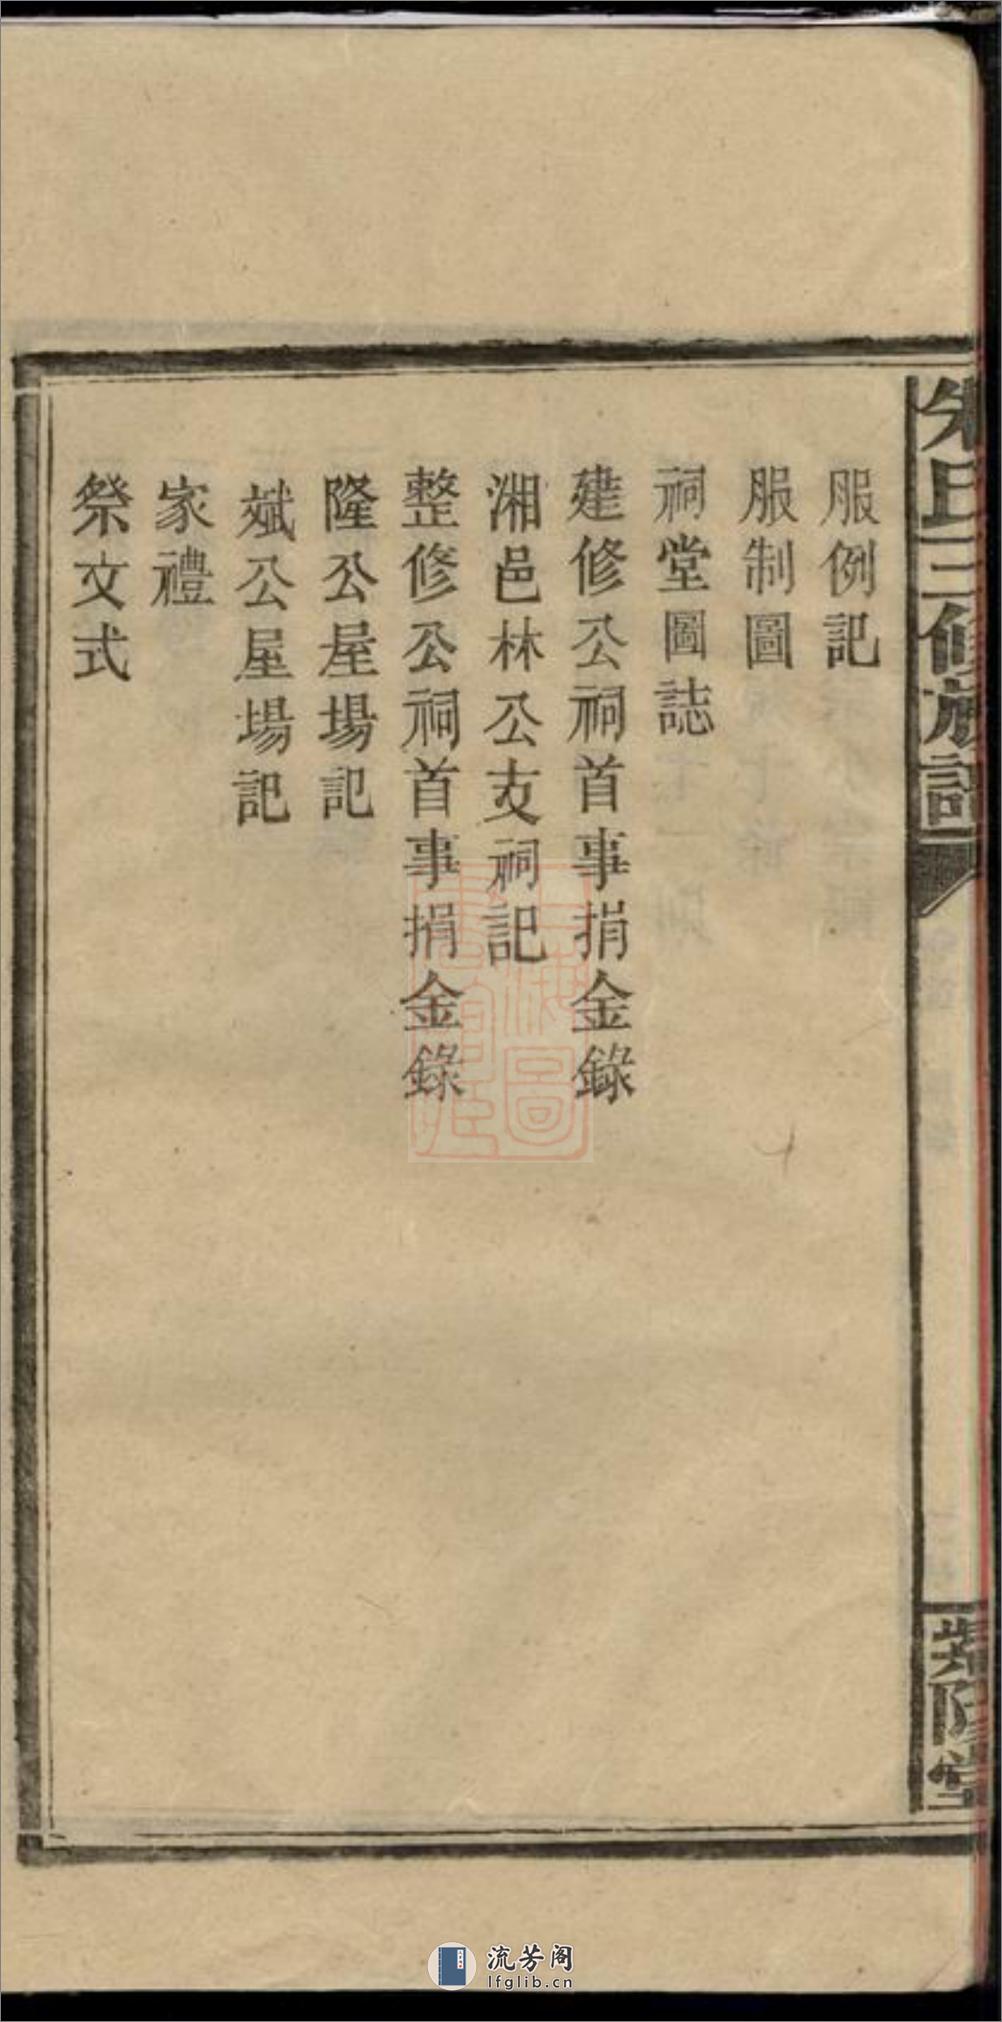 朱氏三修族譜
服例記
服制圖
祠堂圖誌
建修公祠首事捐金錄
湘邑林公支祠記
整修公祠首事捐金錄
隆公屋場記
斌公屋場記
家禮
祭文式
紫陽堂
上海圖書館藏
流芳阁
lfglib.cn